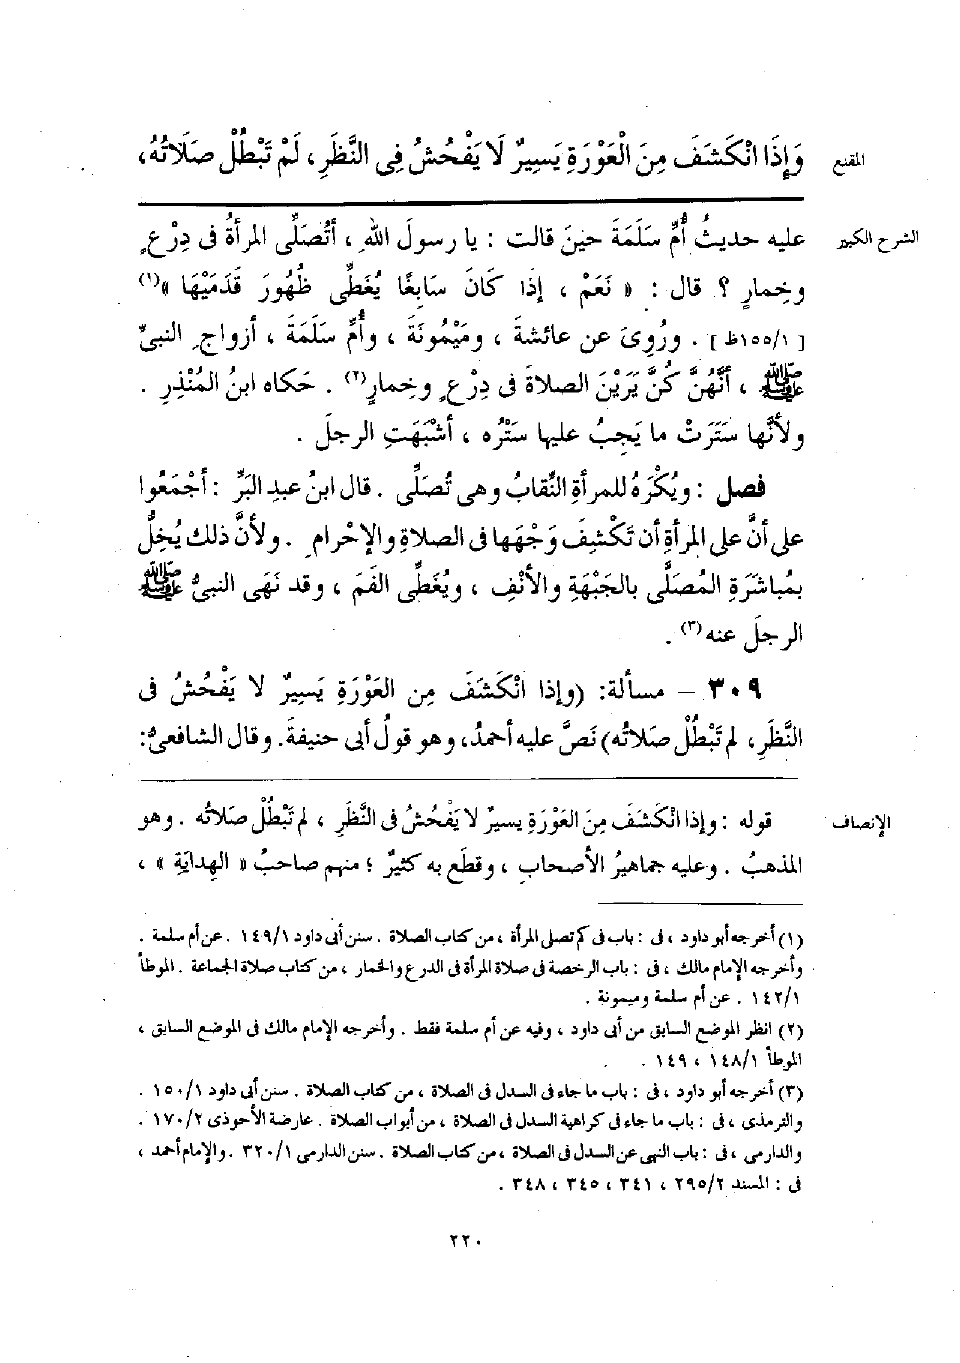 المقنع
وَإِذَا انْكَشَفَ مِنَ الْعَوْرَةِ يَسِيرٌ لَا يَفْحُشُ فِى النَّظَرِ، لَمْ تَبْطُلْ صَلَاتُهُ،
الشرح الكبير
عليه حديثُ أُمِّ سَلَمَةَ حينَ قالت : يا رسولَ اللهِ ، أتُصَلِّى المرأةُ فى دِرْعٍ
وخِمارٍ ؟ قال : « نَعَمْ ، إذا كَانَ سَابِغًا يُغَطِّى ظُهُورَ قَدَمَيْهَا »(١)
[ ١٥٥/١ظ ] . ورُوِىَ عن عائشةَ ، ومَيْمُونَةَ ، وأُمِّ سَلَمَةَ ، أزواجِ النبىِّ
ﷺ ، أنَّهُنَّ كُنَّ يَرَيْنَ الصلاةَ فى دِرْعٍ وخِمارٍ(٢) . حَكاه ابنُ المُنْذِرِ .
ولأنَّها سَتَرَتْ ما يَجِبُ عليها سَتْرُه ، أشْبَهَتِ الرجلَ .
فصل : ويُكْرَهُ للمرأةِ النِّقابُ وهى تُصَلِّى . قال ابنُ عبدِ البَرِّ : أجْمَعُوا
على أنَّ على المرأةِ أن تَكْشِفَ وَجْهَها فى الصلاةِ والإحْرامِ . ولأنَّ ذلك يُخِلُّ
بمُباشَرَةِ المُصَلَّى بالجَبْهَةِ والأنْفِ ، ويُغَطِّى الفَمَ ، وقد نَهَى النبىُّ ﷺ
الرجلَ عنه(٣) .
٣٠٩ – مسألة: (وإذا انْكَشَفَ مِن العَوْرَةِ يَسِيرٌ لا يَفْحُشُ فى
النَّظَرِ، لم تَبْطُلْ صلاتُه) نَصَّ عليه أحمدُ، وهو قولُ أبى حنيفةَ. وقال الشافعىُّ:
الإنصاف
قوله : وإذا انْكَشَفَ مِنَ العَوْرَةِ يسيرٌ لا يَفْحُشُ فى النَّظَرِ ، لم تَبْطُلْ صَلاتُه . وهو
المذهبُ . وعليه جماهيرُ الأصحابِ ، وقطَع به كثيرٌ ؛ منهم صاحبُ « الهدايَةِ » ،
(١) أخرجه أبو داود ، فى : باب فى كم تصلى المرأة ، من كتاب الصلاة . سنن أبى داود ١٤٩/١ . عن أم سلمة .
وأخرجه الإمام مالك ، فى : باب الرخصة فى صلاة المرأة فى الدرع والخمار ، من كتاب صلاة الجماعة . الموطأ
١٤٢/١ . عن أم سلمة وميمونة .
(٢) انظر الموضع السابق من أبى داود ، وفيه عن أم سلمة فقط . وأخرجه الإمام مالك فى الموضع السابق ،
الموطأ ١٤٨/١ ، ١٤٩ .
(٣) أخرجه أبو داود ، فى : باب ما جاء فى السدل فى الصلاة ، من كتاب الصلاة . سنن أبى داود ١٥٠/١ .
والترمذى ، فى : باب ما جاء فى كراهية السدل فى الصلاة ، من أبواب الصلاة . عارضة الأحوذى ١٧٠/٢ .
والدارمى ، فى : باب النهى عن السدل فى الصلاة ، من كتاب الصلاة . سنن الدارمى ٣٢٠/١ . والإمام أحمد ،
فى : المسند ٢٩٥/٢ ، ٣٤١ ، ٣٤٥ ، ٣٤٨ .
٢٢٠